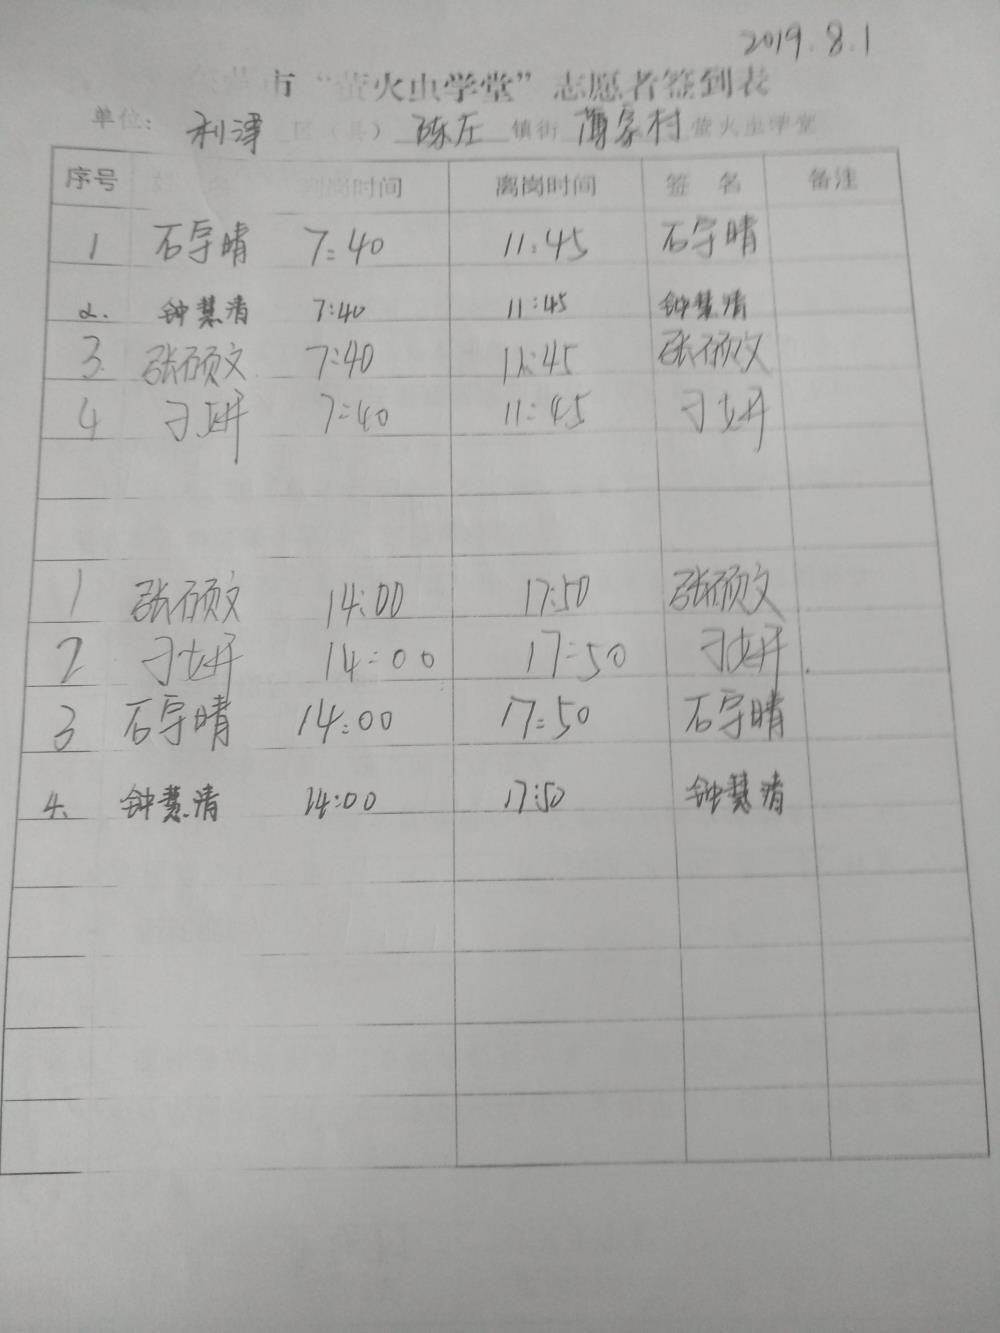 2019.8.1
市“萤火虫学堂”志愿者签到表
单位: 利津 区（县） 陈庄 镇街 薄家村 萤火虫学堂
序号 姓 名 到岗时间 离岗时间 签 名 备注
1 石宇晴 7:40 11:45 石宇晴
2. 钟慧清 7:40 11:45 钟慧清
3 张硕文 7:40 11:45 张硕文
4 7:40 11:45
1 张硕文 14:00 17:50 张硕文
2 14:00 17:50
3 石宇晴 14:00 17:50 石宇晴
4. 钟慧清 14:00 17:50 钟慧清